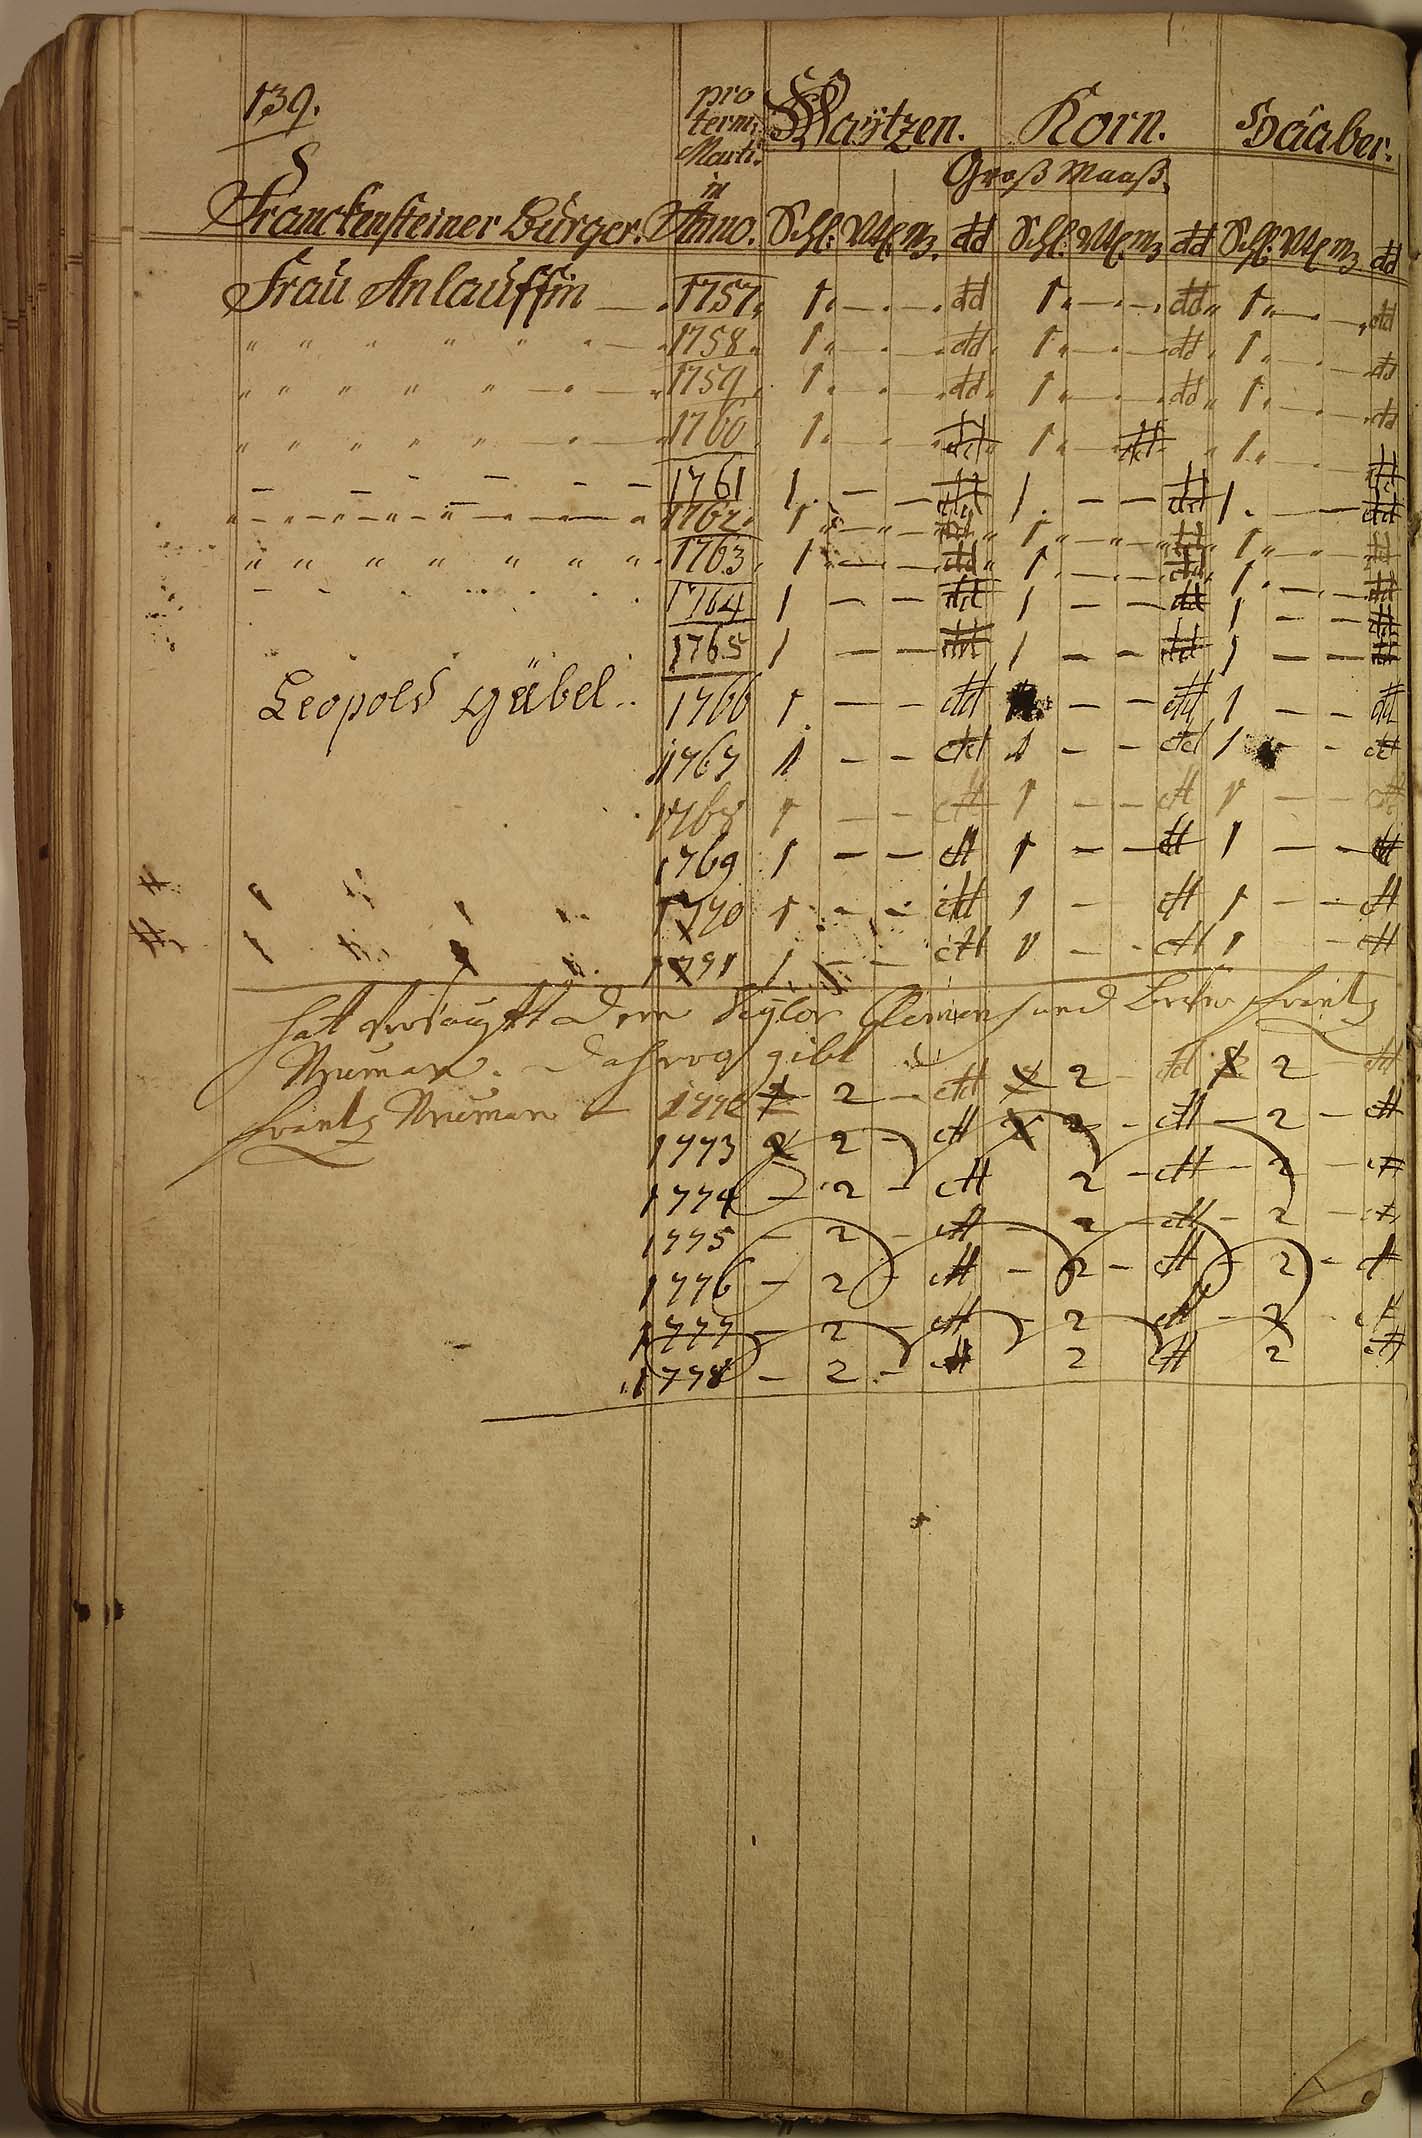 139.
pro
term:
Marti:
in
Anno.
Waÿtzen. Korn. Haaber.
Groß Maaß.
Franckensteiner Bürger. Schl: Vtl. mz. dd Schl: Vtl. mz dd Schl: Vtl. mz dd
Frau Anlauffin — 1757 1 — — dd 1 — — dd 1 — — dd
" " " " " — 1758 1 — — dd 1 — — dd 1 — — dd
" " " " " — 1759 1 — — dd 1 — — dd 1 — — dd
" " " " " — 1760 1 — — dd 1 — dd 1 — dd
— — — — — — 1761 1 — — dd 1 — — dd 1 — dd
" " " " " — 1762 1 — — dd 1 — — dd 1 — — dd
" " " " " " " 1763 1 — — dd 1 — — dd 1 — — dd
1764 1 — — dd 1 — — dd 1 — — dd
1765 1 — — dd 1 — — dd 1 — — dd
Leopold Gübel 1766 1 — — dd — — dd 1 — — dd
1767 1 — — dd 1 — — dd 1 — dd
1768 1 — — dd 1 — — dd 1 — — dd
1769 1 — — dd 1 — — dd 1 — — dd
1770 1 — — dd 1 — dd 1 — — dd
1771 1 — — dd 1 — — dd 1 — dd
hat verkaufft dem und Frantz
Neuman. gibt
Frantz Neuman — 1772 2 — dd 2 — dd 2 — dd
1773 2 — dd 2 — dd — 2 — dd
1774 — 2 — dd 2 — dd — 2 — dd
1775 — 2 — dd — 2 — dd — 2 — dd
1776 — 2 — dd — 2 — dd 2 — dd
1777 — 2 — dd — 2 dd — 2 dd
1778 — 2 — dd 2 dd 2 dd